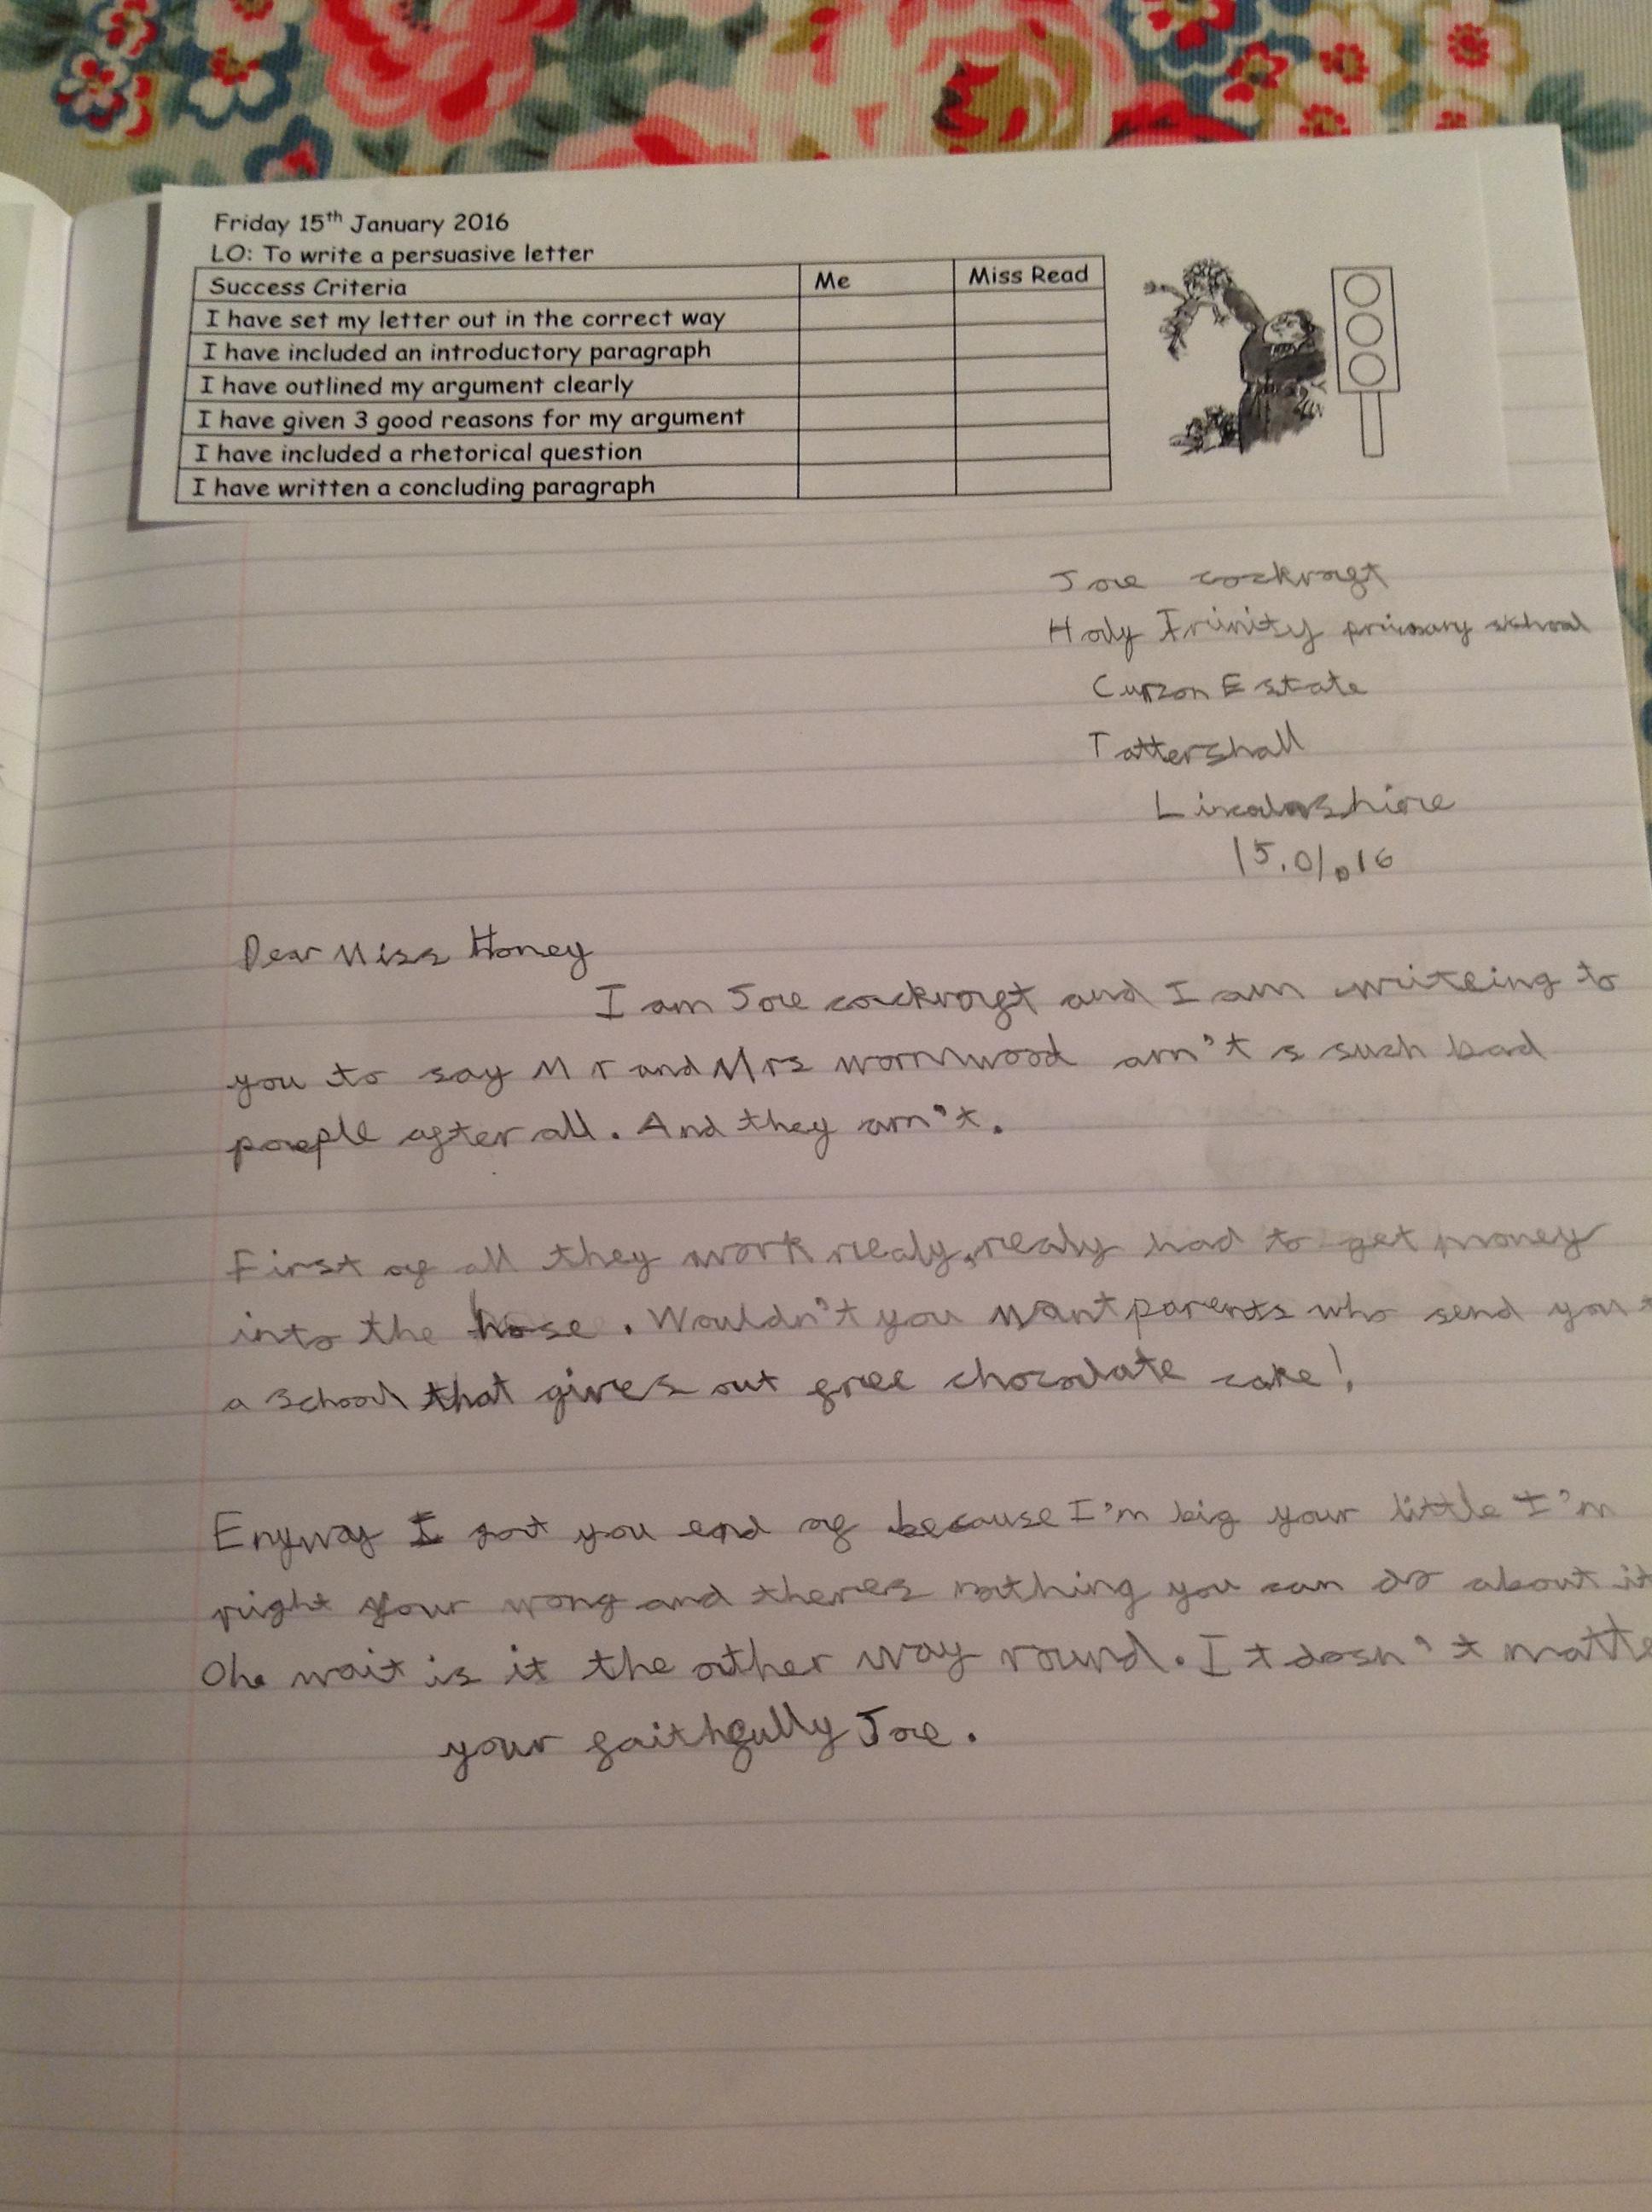 Friday 15th January 2016
LO: To write a persuasive letter
Success Criteria Me Miss Read
I have set my letter out in the correct way
I have included an introductory paragraph
I have outlined my argument clearly
I have given 3 good reasons for my argument
I have included a rhetorical question
I have written a concluding paragraph
Joe cockroft
Holy Trinity primary school
Curzon Estate
Tattershall
Lincolnshire
15.01.16
Dear Miss Honey
I am Joe cockroft and I am writeing to
you to say Mr and Mrs wormwood arn't s such bad
poeple after all. And they arn't.
First of all they work realy, realy had to get money
into the hose. Wouldn't you want parents who send you t
a school that gives out free chocolate cake!
Enyway I got you end of because I'm big your little I'm
right your wrong and theres nothing you can do about it
Oh wait is it the other way round. It dosn't matte
your faithfully Joe.